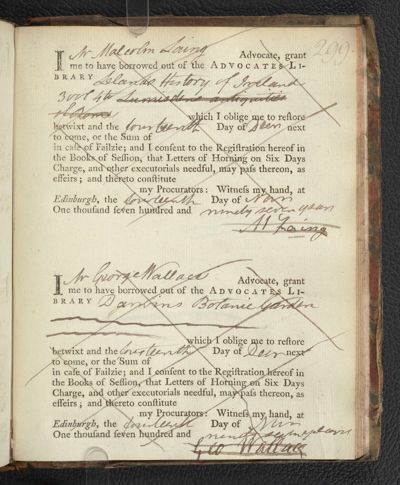 299.
I Mr Malcolm Laing Advocate, grant
me to have borrowed out of the ADVOCATES LI-
BRARY Lelands History of Ireland
3 vol 4to Lumisdens antiquities
of Rome which I oblige me to reſtore
betwixt and the fourteenth Day of Decr next
to come, or the Sum of
in caſe of Failzie; and I conſent to the Regiſtration hereof in
the Books of Seſſion, that Letters of Horning on Six Days
Charge, and other executorials needful, may paſs thereon, as
effeirs; and thereto conſtitute
my Procurators: Witneſs my hand, at
Edinburgh, the fourteenth Day of Novr
One thouſand ſeven hundred and ninety seven years
M Laing
I Mr George Wallace Advocate, grant
me to have borrowed out of the ADVOCATES LI-
BRARY Darwins Botanic Garden
which I oblige me to reſtore
betwixt and the fourteenth Day of Decr next
to come, or the Sum of
in caſe of Failzie; and I conſent to the Regiſtration hereof in
the Books of Seſſion, that Letters of Horning on Six Days
Charge, and other executorials needful, may paſs thereon, as
effeirs; and thereto conſtitute
my Procurators: Witneſs my hand, at
Edinburgh, the fourteenth Day of Novr
One thouſand ſeven hundred and ninety seven years
Geo Wallace